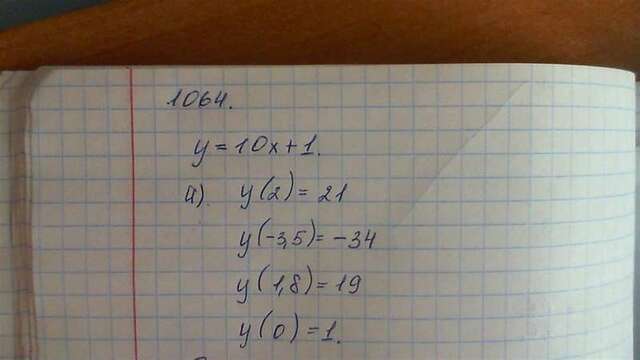 1064.
y = 10x + 1.
а). y(2) = 21
y(-3,5) = -34
y(1,8) = 19
y(0) = 1.